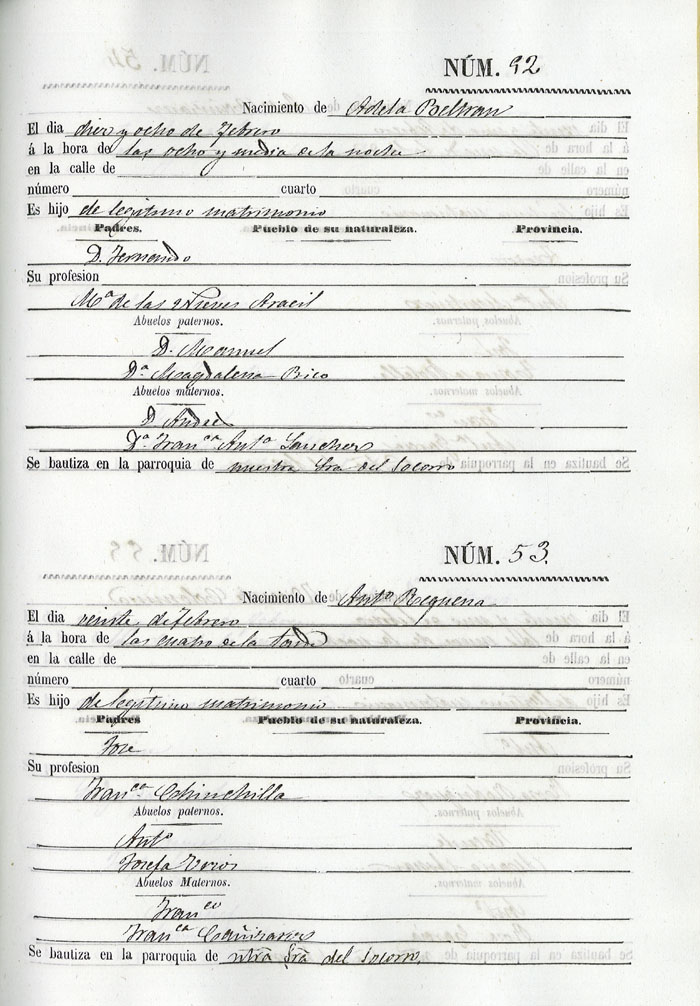 NÚM. 92
Nacimiento de Adela Beltran
El dia diez y ocho de Febrero
á la hora de las ocho y media de la noche
en la calle de
número cuarto
Es hijo de legitimo matrimonio
Padres. Pueblo de su naturaleza. Provincia.
D. Fernando
Su profesion
Mª de las Nieves Aracil
Abuelos paternos.
D. Manuel
Dª Magdalena Rico
Abuelos maternos.
D. Andres
Dª Franᶜᵃ Antª Sanchez
Se bautiza en la parroquia de nuestra Sra del Socorro
NÚM. 53.
Nacimiento de Antº Requena
El dia veinte de Febrero
á la hora de las cuatro de la tarde
en la calle de
número cuarto
Es hijo de legitimo matrimonio
Padres Pueblo de su naturaleza. Provincia.
Jose
Su profesion
Franᶜᵃ Chinchilla
Abuelos paternos.
Antº
Josefa Urios
Abuelos Maternos.
Franᶜᵒ
Franᶜᵃ
Se bautiza en la parroquia de ntra Sra del Socorro.